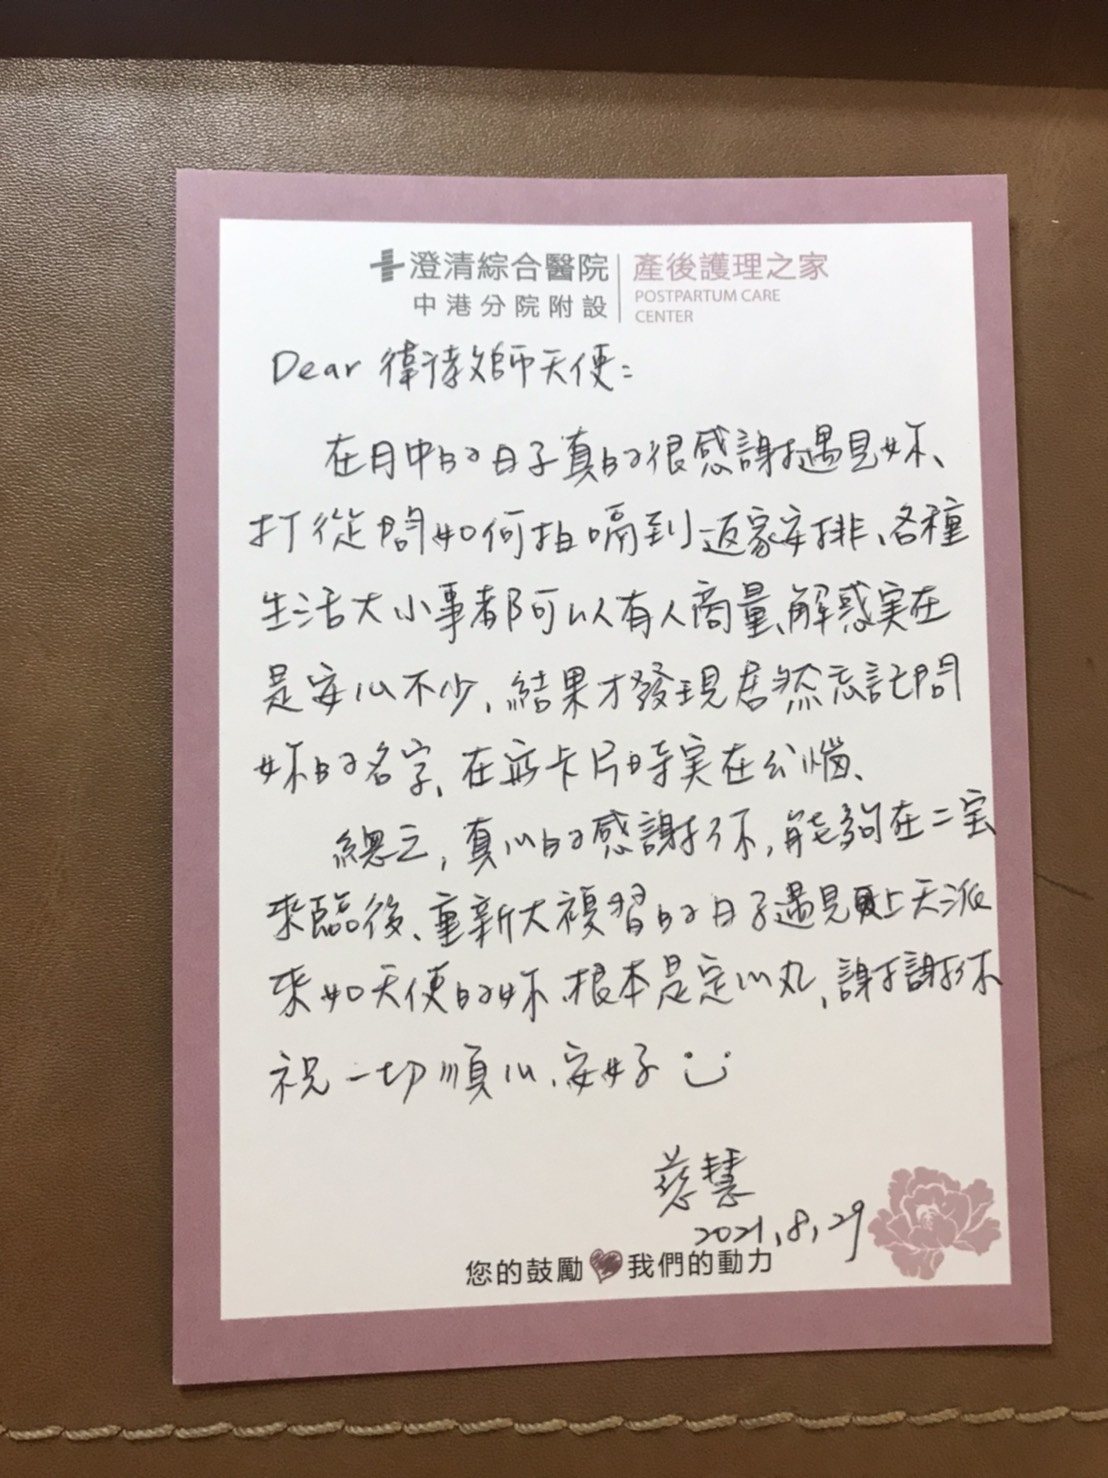 澄清綜合醫院
中港分院附設
產後護理之家
POSTPARTUM CARE
CENTER
Dear 衛教師天使：
在月中的日子真的很感謝遇見妳、
打從問如何拍嗝到返家安排、各種
生活大小事都可以有人商量、解惑実在
是安心不少, 結果才發現居然忘記問
妳的名字、在寫卡片時実在公惱、
總之, 真心的感謝你, 能夠在二宝
來臨後、重新大複習的日子遇見上天派
來如天使的妳、根本是定心丸, 謝謝你
祝一切順心、安好
慈慧
2021,8,29
您的鼓勵 我們的動力